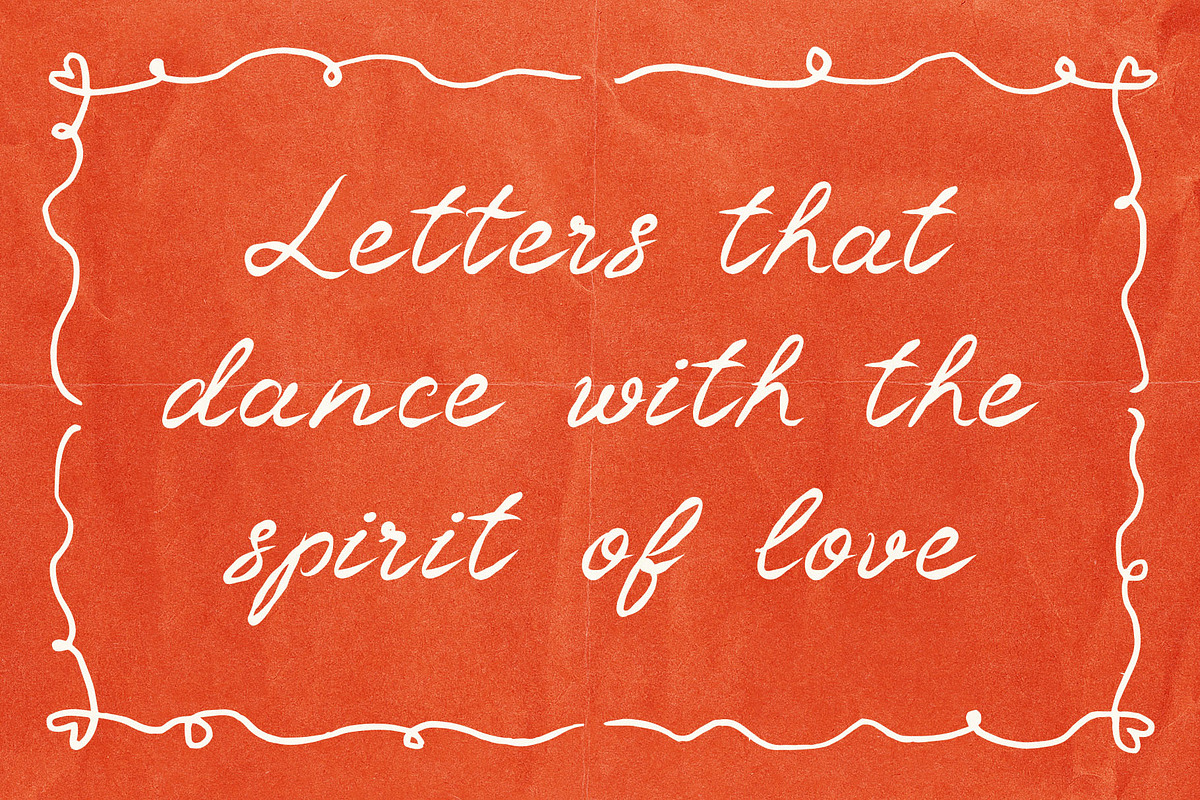 Letters that
dance with the
spirit of love